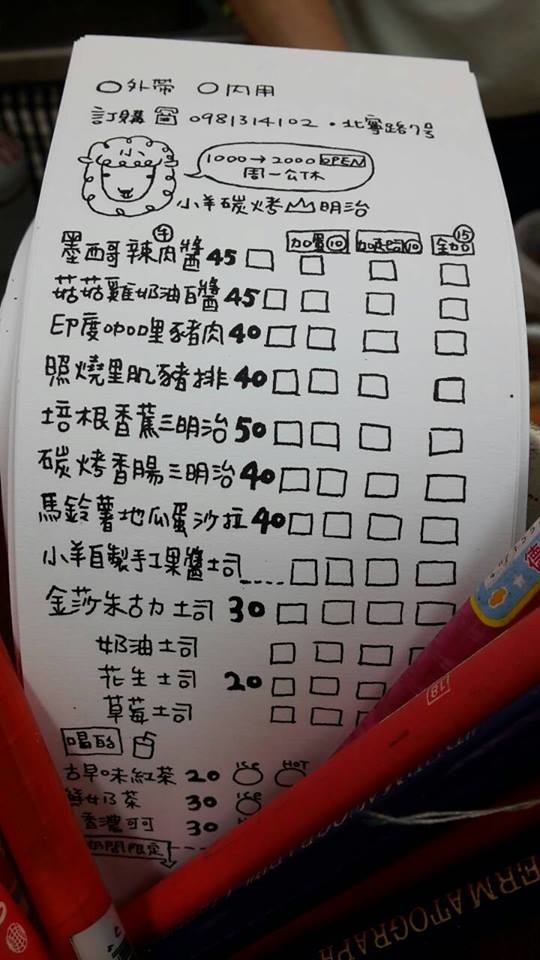 ○外帶 ○內用
訂購 0981314102・北寧路7号
小羊
1000→2000 OPEN
周一公休
小羊碳烤 明治
加蛋⑩ 加起司⑩ 全加⑮
墨西哥辣肉醬 牛 45
菇菇雞奶油白醬 45
印度咖哩豬肉 40
照燒里肌豬排 40
培根香蕉三明治 50
碳烤香腸三明治 40
馬鈴薯地瓜蛋沙拉 40
小羊自製手工果醬土司----
金莎朱古力土司 30
奶油土司
花生土司 20
草莓土司
喝的
古早味紅茶 20 ICE HOT
鮮奶茶 30 ICE
香濃可可 30
期間限定
ERMATOGRAPH